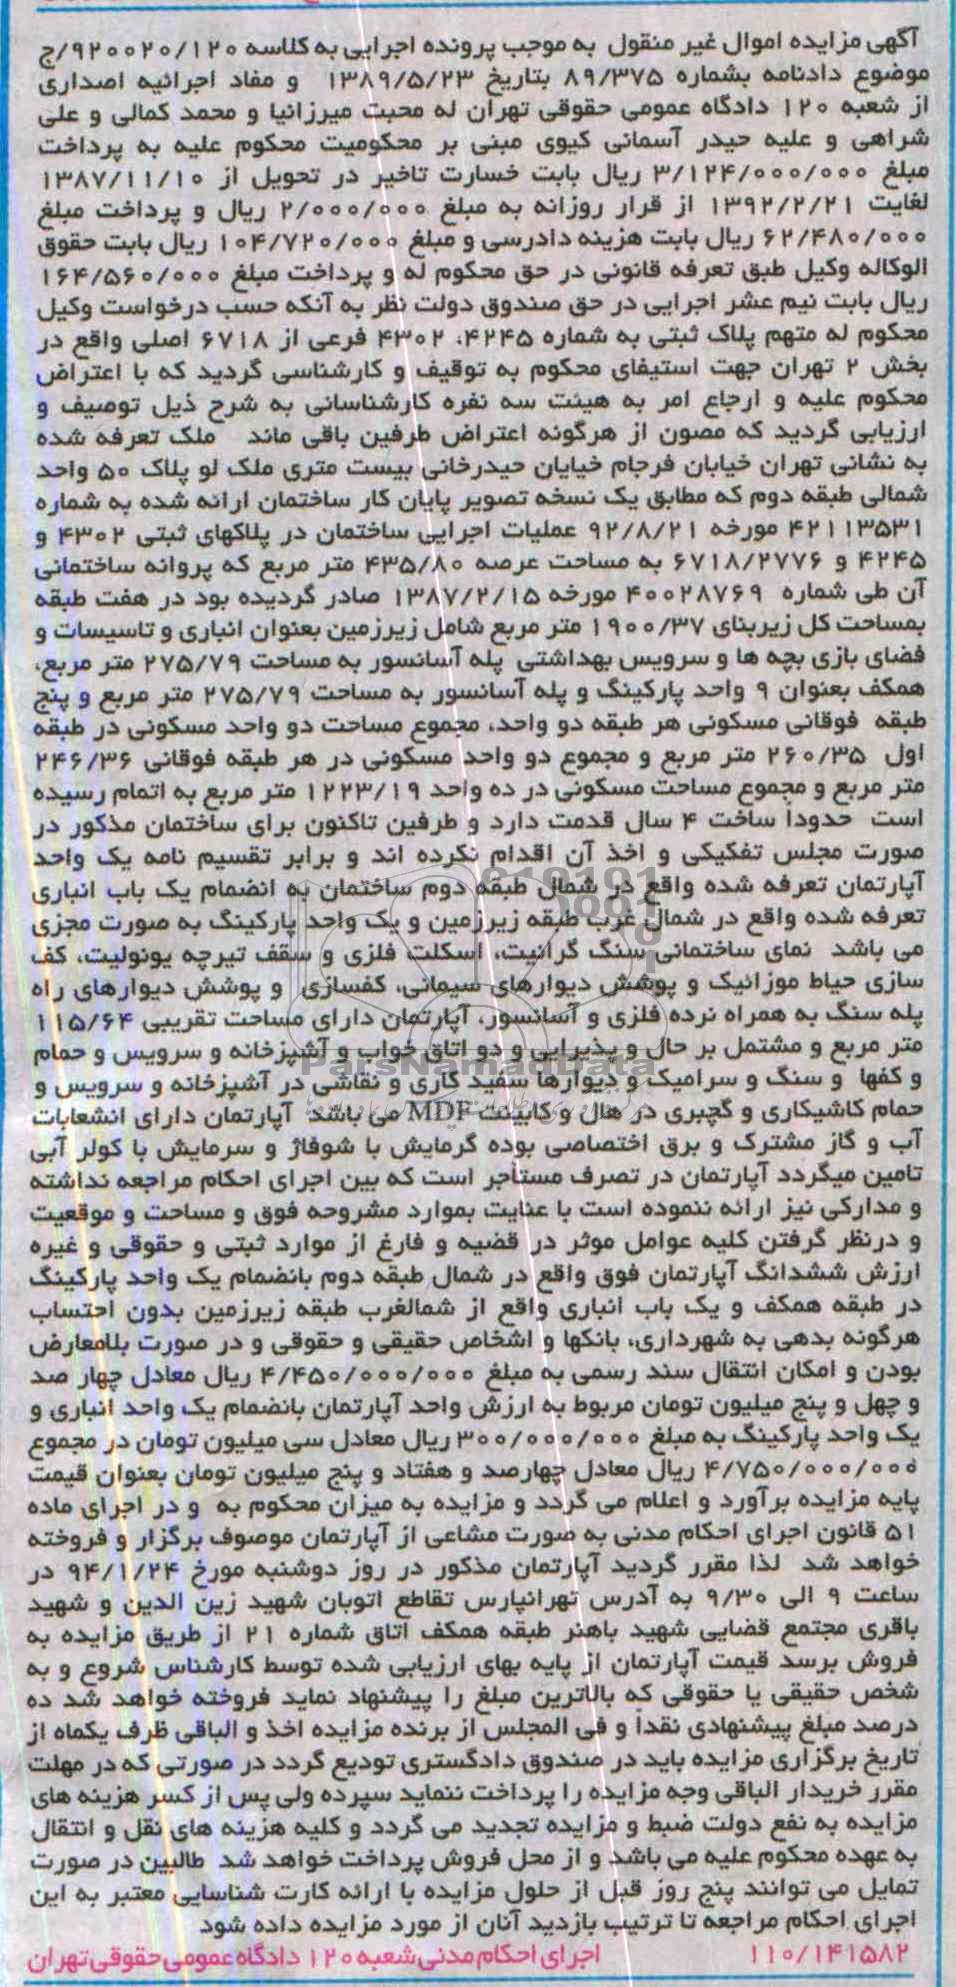 آگهی مزایده اموال غیر منقول به موجب پرونده اجرایی به کلاسه ۹۲۰۰۲۰/۱۲۰/ج
موضوع دادنامه بشماره ۸۹/۳۷۵ بتاریخ ۱۳۸۹/۵/۲۳ و مفاد اجرائیه اصداری
از شعبه ۱۲۰ دادگاه عمومی حقوقی تهران له محبت میرزانیا و محمد کمالی و علی
شراهی و علیه حیدر آسمانی کیوی مبنی بر محکومیت محکوم علیه به پرداخت
مبلغ ۳/۱۲۴/۰۰۰/۰۰۰ ریال بابت خسارت تاخیر در تحویل از ۱۳۸۷/۱۱/۱۰
لغایت ۱۳۹۲/۲/۲۱ از قرار روزانه به مبلغ ۲/۰۰۰/۰۰۰ ریال و پرداخت مبلغ
۶۲/۴۸۰/۰۰۰ ریال بابت هزینه دادرسی و مبلغ ۱۰۴/۷۲۰/۰۰۰ ریال بابت حقوق
الوکاله وکیل طبق تعرفه قانونی در حق محکوم له و پرداخت مبلغ ۱۶۴/۵۶۰/۰۰۰
ریال بابت نیم عشر اجرایی در حق صندوق دولت نظر به آنکه حسب درخواست وکیل
محکوم له متهم پلاک ثبتی به شماره ۴۲۴۵، ۴۳۰۲ فرعی از ۶۷۱۸ اصلی واقع در
بخش ۲ تهران جهت استیفای محکوم به توقیف و کارشناسی گردید که با اعتراض
محکوم علیه و ارجاع امر به هیئت سه نفره کارشناسانی به شرح ذیل توصیف و
ارزیابی گردید که مصون از هرگونه اعتراض طرفین باقی ماند ملک تعرفه شده
به نشانی تهران خیابان فرجام خیابان حیدرخانی بیست متری ملک لو پلاک ۵۰ واحد
شمالی طبقه دوم که مطابق یک نسخه تصویر پایان کار ساختمان ارائه شده به شماره
۴۲۱۱۳۵۳۱ مورخه ۹۲/۸/۲۱ عملیات اجرایی ساختمان در پلاکهای ثبتی ۴۳۰۲ و
۴۲۴۵ و ۶۷۱۸/۲۷۷۶ به مساحت عرصه ۴۳۵/۸۰ متر مربع که پروانه ساختمانی
آن طی شماره ۴۰۰۲۸۷۶۹ مورخه ۱۳۸۷/۲/۱۵ صادر گردیده بود در هفت طبقه
بمساحت کل زیربنای ۱۹۰۰/۳۷ متر مربع شامل زیرزمین بعنوان انباری و تاسیسات و
فضای بازی بچه ها و سرویس بهداشتی پله آسانسور به مساحت ۲۷۵/۷۹ متر مربع،
همکف بعنوان ۹ واحد پارکینگ و پله آسانسور به مساحت ۲۷۵/۷۹ متر مربع و پنج
طبقه فوقانی مسکونی هر طبقه دو واحد، مجموع مساحت دو واحد مسکونی در طبقه
اول ۲۶۰/۳۵ متر مربع و مجموع دو واحد مسکونی در هر طبقه فوقانی ۲۴۶/۳۶
متر مربع و مجموع مساحت مسکونی در ده واحد ۱۲۲۳/۱۹ متر مربع به اتمام رسیده
است حدودا ساخت ۴ سال قدمت دارد و طرفین تاکنون برای ساختمان مذکور در
صورت مجلس تفکیکی و اخذ آن اقدام نکرده اند و برابر تقسیم نامه یک واحد
آپارتمان تعرفه شده واقع در شمال طبقه دوم ساختمان به انضمام یک باب انباری
تعرفه شده واقع در شمال غرب طبقه زیرزمین و یک واحد پارکینگ به صورت مجزی
می باشد نمای ساختمانی سنگ گرانیت، اسکلت فلزی و سقف تیرچه یونولیت، کف
سازی حیاط موزائیک و پوشش دیوارهای سیمانی، کفسازی و پوشش دیوارهای راه
پله سنگ به همراه نرده فلزی و آسانسور، آپارتمان دارای مساحت تقریبی ۱۱۵/۶۴
متر مربع و مشتمل بر حال و پذیرایی و دو اتاق خواب و آشپزخانه و سرویس و حمام
ParsNamadData
و کفها و سنگ و سرامیک و دیوارها سفید کاری و نقاشی در آشپزخانه و سرویس و
حمام کاشیکاری و گچبری در هال و کابینت MDF می باشد آپارتمان دارای انشعابات
آب و گاز مشترک و برق اختصاصی بوده گرمایش با شوفاژ و سرمایش با کولر آبی
تامین میگردد آپارتمان در تصرف مستأجر است که بین اجرای احکام مراجعه نداشته
و مدارکی نیز ارائه ننموده است با عنایت بموارد مشروحه فوق و مساحت و موقعیت
و درنظر گرفتن کلیه عوامل موثر در قضیه و فارغ از موارد ثبتی و حقوقی و غیره
ارزش ششدانگ آپارتمان فوق واقع در شمال طبقه دوم بانضمام یک واحد پارکینگ
در طبقه همکف و یک باب انباری واقع از شمالغرب طبقه زیرزمین بدون احتساب
هرگونه بدهی به شهرداری، بانکها و اشخاص حقیقی و حقوقی و در صورت بلامعارض
بودن و امکان انتقال سند رسمی به مبلغ ۴/۴۵۰/۰۰۰/۰۰۰ ریال معادل چهار صد
و چهل و پنج میلیون تومان مربوط به ارزش واحد آپارتمان بانضمام یک واحد انباری و
یک واحد پارکینگ به مبلغ ۳۰۰/۰۰۰/۰۰۰ ریال معادل سی میلیون تومان در مجموع
۴/۷۵۰/۰۰۰/۰۰۰ ریال معادل چهارصد و هفتاد و پنج میلیون تومان بعنوان قیمت
پایه مزایده برآورد و اعلام می گردد و مزایده به میزان محکوم به و در اجرای ماده
۵۱ قانون اجرای احکام مدنی به صورت مشاعی از آپارتمان موصوف برگزار و فروخته
خواهد شد لذا مقرر گردید آپارتمان مذکور در روز دوشنبه مورخ ۹۴/۱/۲۴ در
ساعت ۹ الی ۹/۳۰ به آدرس تهرانپارس تقاطع اتوبان شهید زین الدین و شهید
باقری مجتمع قضایی شهید باهنر طبقه همکف اتاق شماره ۲۱ از طریق مزایده به
فروش برسد قیمت آپارتمان از پایه بهای ارزیابی شده توسط کارشناس شروع و به
شخص حقیقی یا حقوقی که بالاترین مبلغ را پیشنهاد نماید فروخته خواهد شد ده
درصد مبلغ پیشنهادی نقداً و فی المجلس از برنده مزایده اخذ و الباقی ظرف یکماه از
تاریخ برگزاری مزایده باید در صندوق دادگستری تودیع گردد در صورتی که در مهلت
مقرر خریدار الباقی وجه مزایده را پرداخت ننماید سپرده ولی پس از کسر هزینه های
مزایده به نفع دولت ضبط و مزایده تجدید می گردد و کلیه هزینه های نقل و انتقال
به عهده محکوم علیه می باشد و از محل فروش پرداخت خواهد شد طالبین در صورت
تمایل می توانند پنج روز قبل از حلول مزایده با ارائه کارت شناسایی معتبر به این
اجرای احکام مراجعه تا ترتیب بازدید آنان از مورد مزایده داده شود
۱۱۰/۱۴۱۵۸۲ اجرای احکام مدنی شعبه ۱۲۰ دادگاه عمومی حقوقی تهران